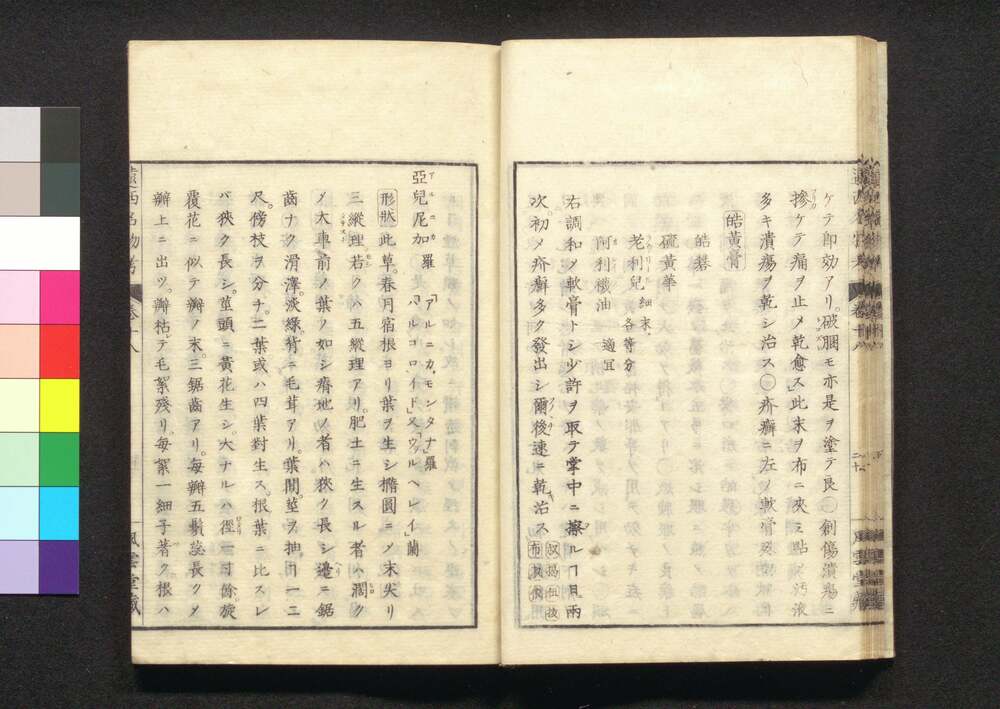 ケテ即効アリ。破䐃モ亦是ヲ塗テ良○創傷潰瘍ニ
摻ケテ痛ヲ止メ乾愈ス」此末ヲ布ニ夾ミ點
多キ潰瘍ヲ乾シ治ス○疥癬ニ左ノ軟膏
皓黃膏
皓礬
硫黃華
老利兒 細末、各等分
阿利襪油 適宜
右調和メ軟膏トシ少許ヲ取テ掌中ニ擦ルヿ日兩
次。初メ疥癬多ク發出シ爾後速ニ乾治ス
亞兒尼加 羅「アルニカ、モンタナ」羅
「ハルコロイド」又「ウヲルヘレイ」蘭
形狀 此草。春月宿根ヨリ葉ヲ生シ橢圓ニメ末尖リ
三縱理若クハ五縱理アリ。肥土ニ生スル者ハ濶ク
メ大車前ノ葉ノ如シ瘠地ノ者ハ狹ク長シ邉ニ鋸
齒ナク滑澤。淡綠背ニ毛茸アリ。葉間。莖ヲ抽ヿ一二
尺。傍枝ヲ分チ。二葉或ハ四葉對生ス。根葉ニ比スレ
ハ狹ク長シ。莖頭ニ黃花生シ。大ナルハ徑二寸餘旋
覆花ニ似テ瓣ノ末。三鋸齒アリ。每瓣五鬚蕊長クメ
瓣上ニ出ツ。瓣枯テ毛絮殘リ。每絮一細子著ク根ハ
遠西名物考 卷十八
風雲堂藏